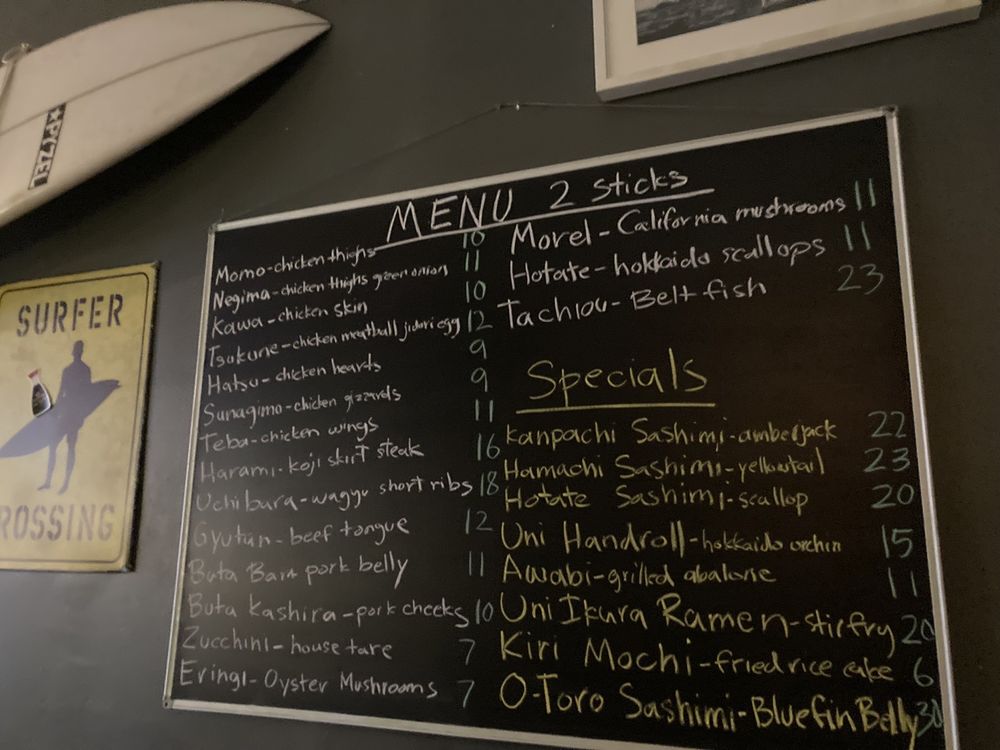 PYZEL
SURFER
ROSSING
MENU 2 sticks
Momo-chicken thighs 10
Negima-chicken thighs green onion 11
Kawa-chicken skin 10
Tsukune-chicken meatball jidori egg 12
Hatsu-chicken hearts 9
Sunagimo-chicken gizzards 9
Teba-chicken wings 11
Harami-koji skirt steak 16
Uchibara-wagyu short ribs 18
Gyutan-beef tongue 12
Buta Bara pork belly 11
Buta Kashira-pork cheeks 10
Zucchini-house tare 7
Eringi-Oyster Mushrooms 7
Morel-California mushrooms 11
Hotate-hokkaido scallops 11
Tachiou-Belt fish 23
Specials
Kanpachi Sashimi-amberjack 22
Hamachi Sashimi-yellowtail 23
Hotate Sashimi-scallop 20
Uni Handroll-hokkaido urchin 15
Awabi-grilled abalone 11
Uni Ikura Ramen-stirfry 20
Kiri Mochi-fried rice cake 6
O-Toro Sashimi-Bluefin Belly 30